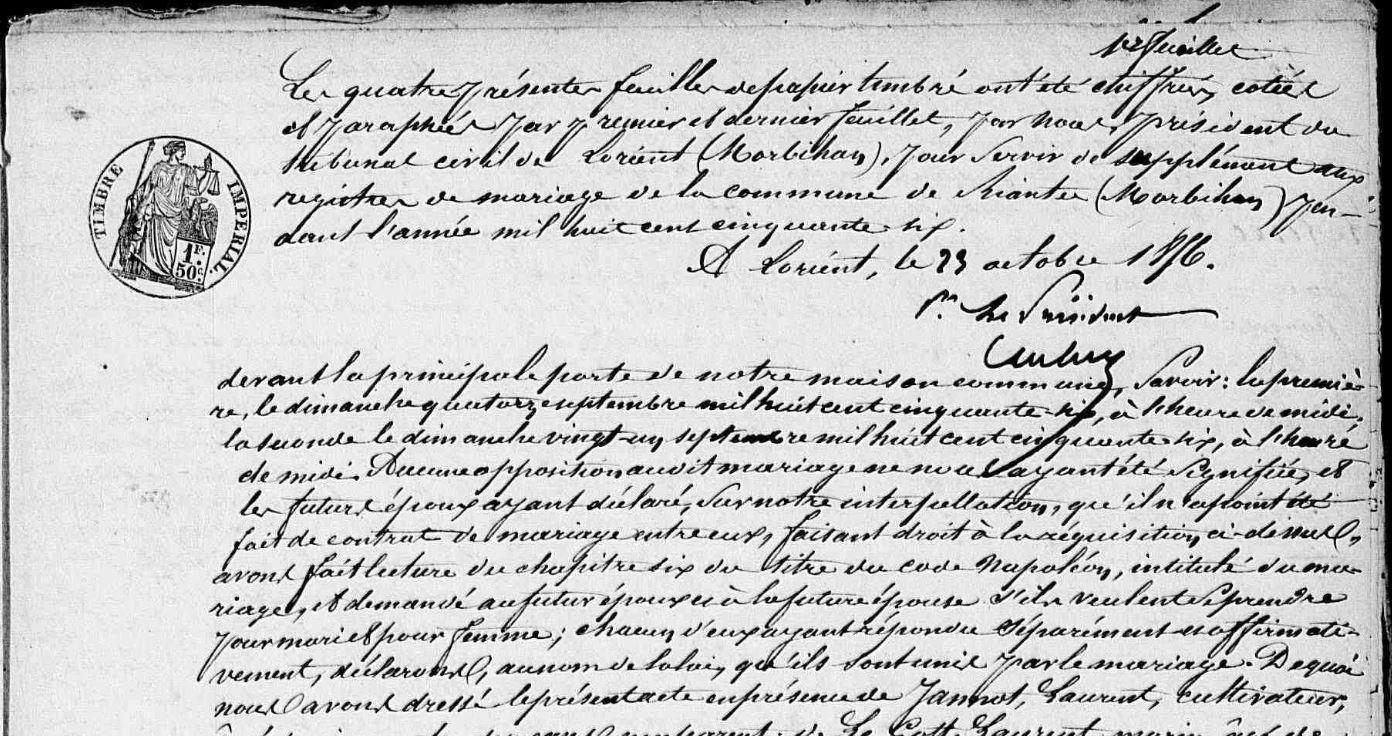 1er feuillet
Les quatre présentes feuilles de papier timbré ont été chiffrées, cotées
et paraphées par premier et dernier feuillet, par nous, président du
tribunal civil de Lorient (Morbihan), pour servir de supplément aux
registres de mariage de la commune de Riantec (Morbihan) pen-
dant l'année mil huit cent cinquante six.
A Lorient, le 23 octobre 1856.
Pr. Le Président
TIMBRE IMPÉRIAL.
1 F.
50 c.
devant la principale porte de notre maison commune, Savoir: la premiè-
re, le dimanche quatorze septembre mil huit cent cinquante-six, à l'heure de midi,
la seconde le dimanche vingt-un septembre mil huit cent cinquante six, à l'heure
de midi. Aucune opposition audit mariage ne nous ayant été signifiée, et
les futurs époux ayant déclaré, sur notre interpellation, qu'il n'a point été
fait de contrat de mariage entre eux, faisant droit à la réquisition ci-dessus,
avons fait lecture du chapitre six du titre du code Napoléon, intitulé du ma-
riage, et demandé au futur époux et à la future épouse s'ils veulent se prendre
pour mari et pour femme; chacun d'eux ayant répondu séparément et affirmati-
vement, déclarons, au nom de la loi, qu'ils sont unis par le mariage. De quoi
nous avons dressé le présent acte en présence de Jannot, Laurent, cultivateur,
parent; de Le Gott Laurent, marin, âgé de